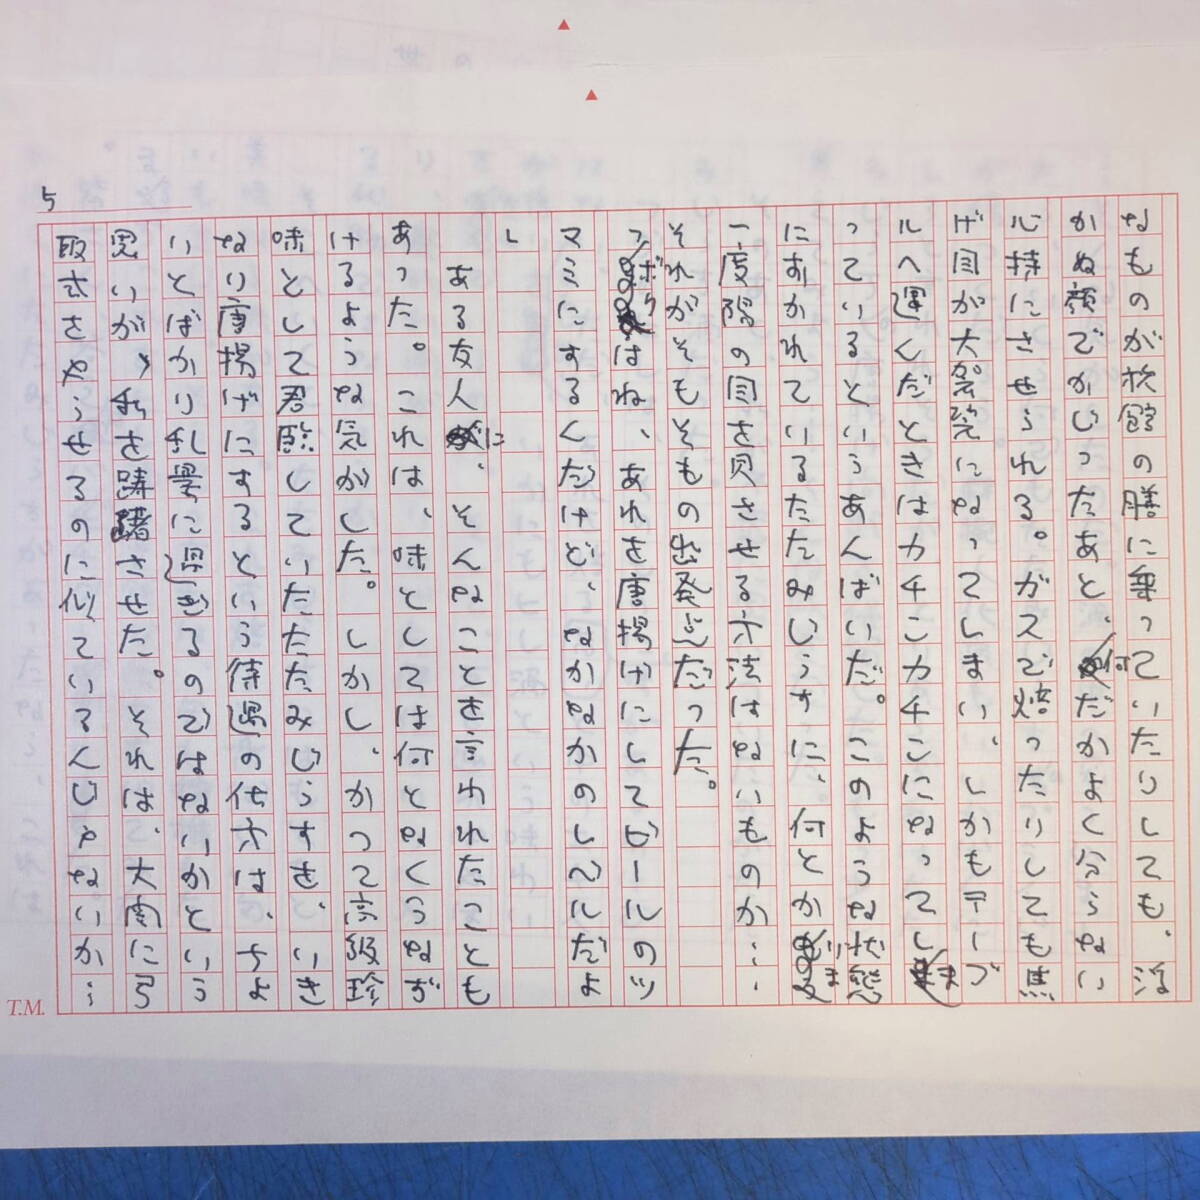 5
なものが旅館の膳に乗っていたりしても、浮
かぬ顔でかじったあと、何だかよく分らない
心持にさせられる。ガスで焙ったりしても焦
げ目が大袈裟になってしまい、しかもテーブ
ルへ運んだときはカチンカチンになってしま
っているというあんばいだ。このような状態
におかれているたたみいわしに、何とかもう
一度陽の目を見させる方法はないものか……
それがそもそもの出発点だった。
「ボクはね、あれを唐揚げにしてビールのツ
マミにするんだけど、なかなかのしヘルだよ
」
ある友人に、そんなことを言われたことも
あった。これは、味としては何となくうなず
けるような気がした。しかし、かつて高級珍
味として君臨していたたたみいわしを、いき
なり唐揚げにするという待遇の仕方は、ちょ
いとばかり乱暴に過ぎるのではないかという
思いが、私を躊躇させた。それは、大関に弓
取式をやらせるのに似ているんじゃないか…
T.M.